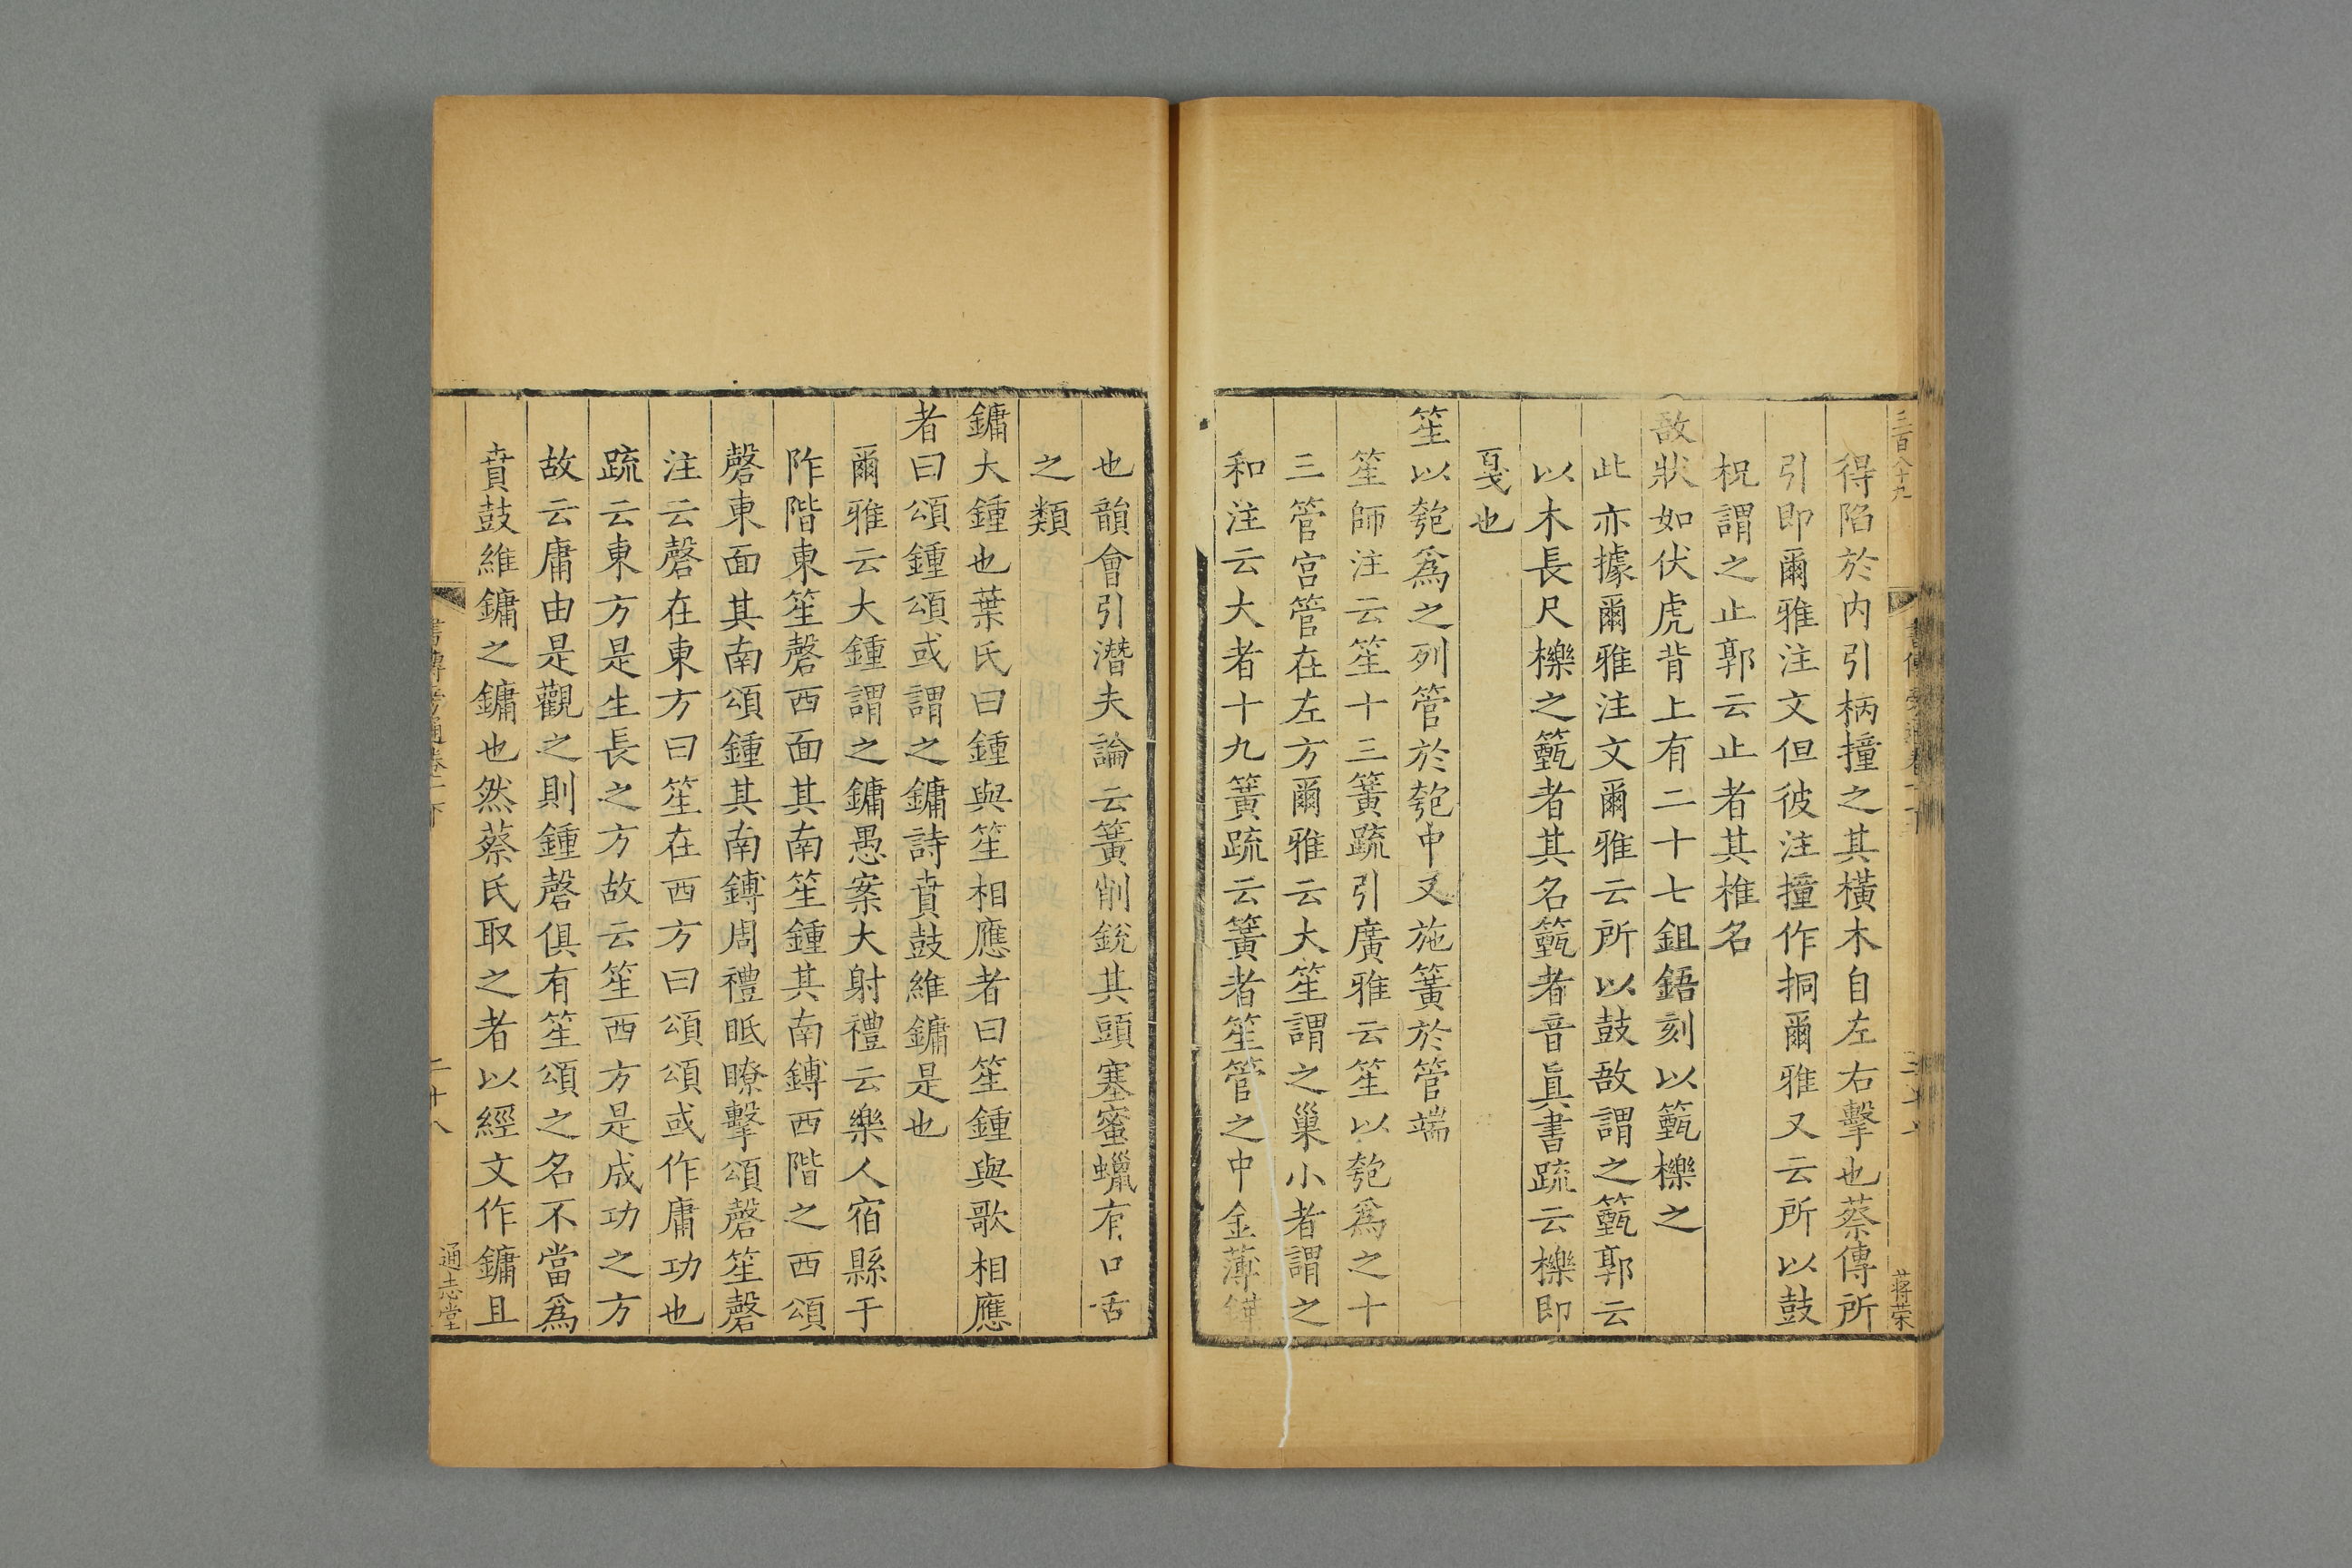 三百八十九
蒋荣
得陷於内引柄撞之其橫木自左右擊也蔡傳所
引即爾雅注文但彼注撞作挏爾雅又云所以鼓
柷謂之止郭云止者其椎名
敔狀如伏虎背上有二十七鉏鋙刻以籈櫟之
此亦據爾雅注文爾雅云所以鼓敔謂之籈郭云
以木長尺櫟之籈者其名籈者音眞書疏云櫟即
戛也
笙以匏爲之列管於匏中又施簧於管端
笙師注云笙十三簧疏引廣雅云笙以匏爲之十
三管宫管在左方爾雅云大笙謂之巢小者謂之
和注云大者十九簧疏云簧者笙管之中金薄鐷
也韻會引潛夫論云簧削銳其頭塞蜜蠟有口舌
之類
鏞大鍾也葉氏曰鍾與笙相應者曰笙鍾與歌相應
者曰頌鍾頌或謂之鏞詩賁鼓維鏞是也
爾雅云大鍾謂之鏞愚案大射禮云樂人宿縣于
阼階東笙磬西面其南笙鍾其南鎛西階之西頌
磬東面其南頌鍾其南鎛周禮眂瞭擊頌磬笙磬
注云磬在東方曰笙在西方曰頌頌或作庸功也
疏云東方是生長之方故云笙西方是成功之方
故云庸由是觀之則鍾磬俱有笙頌之名不當爲
賁鼓維鏞之鏞也然蔡氏取之者以經文作鏞且
書傳旁通卷一下 二十八 通志堂